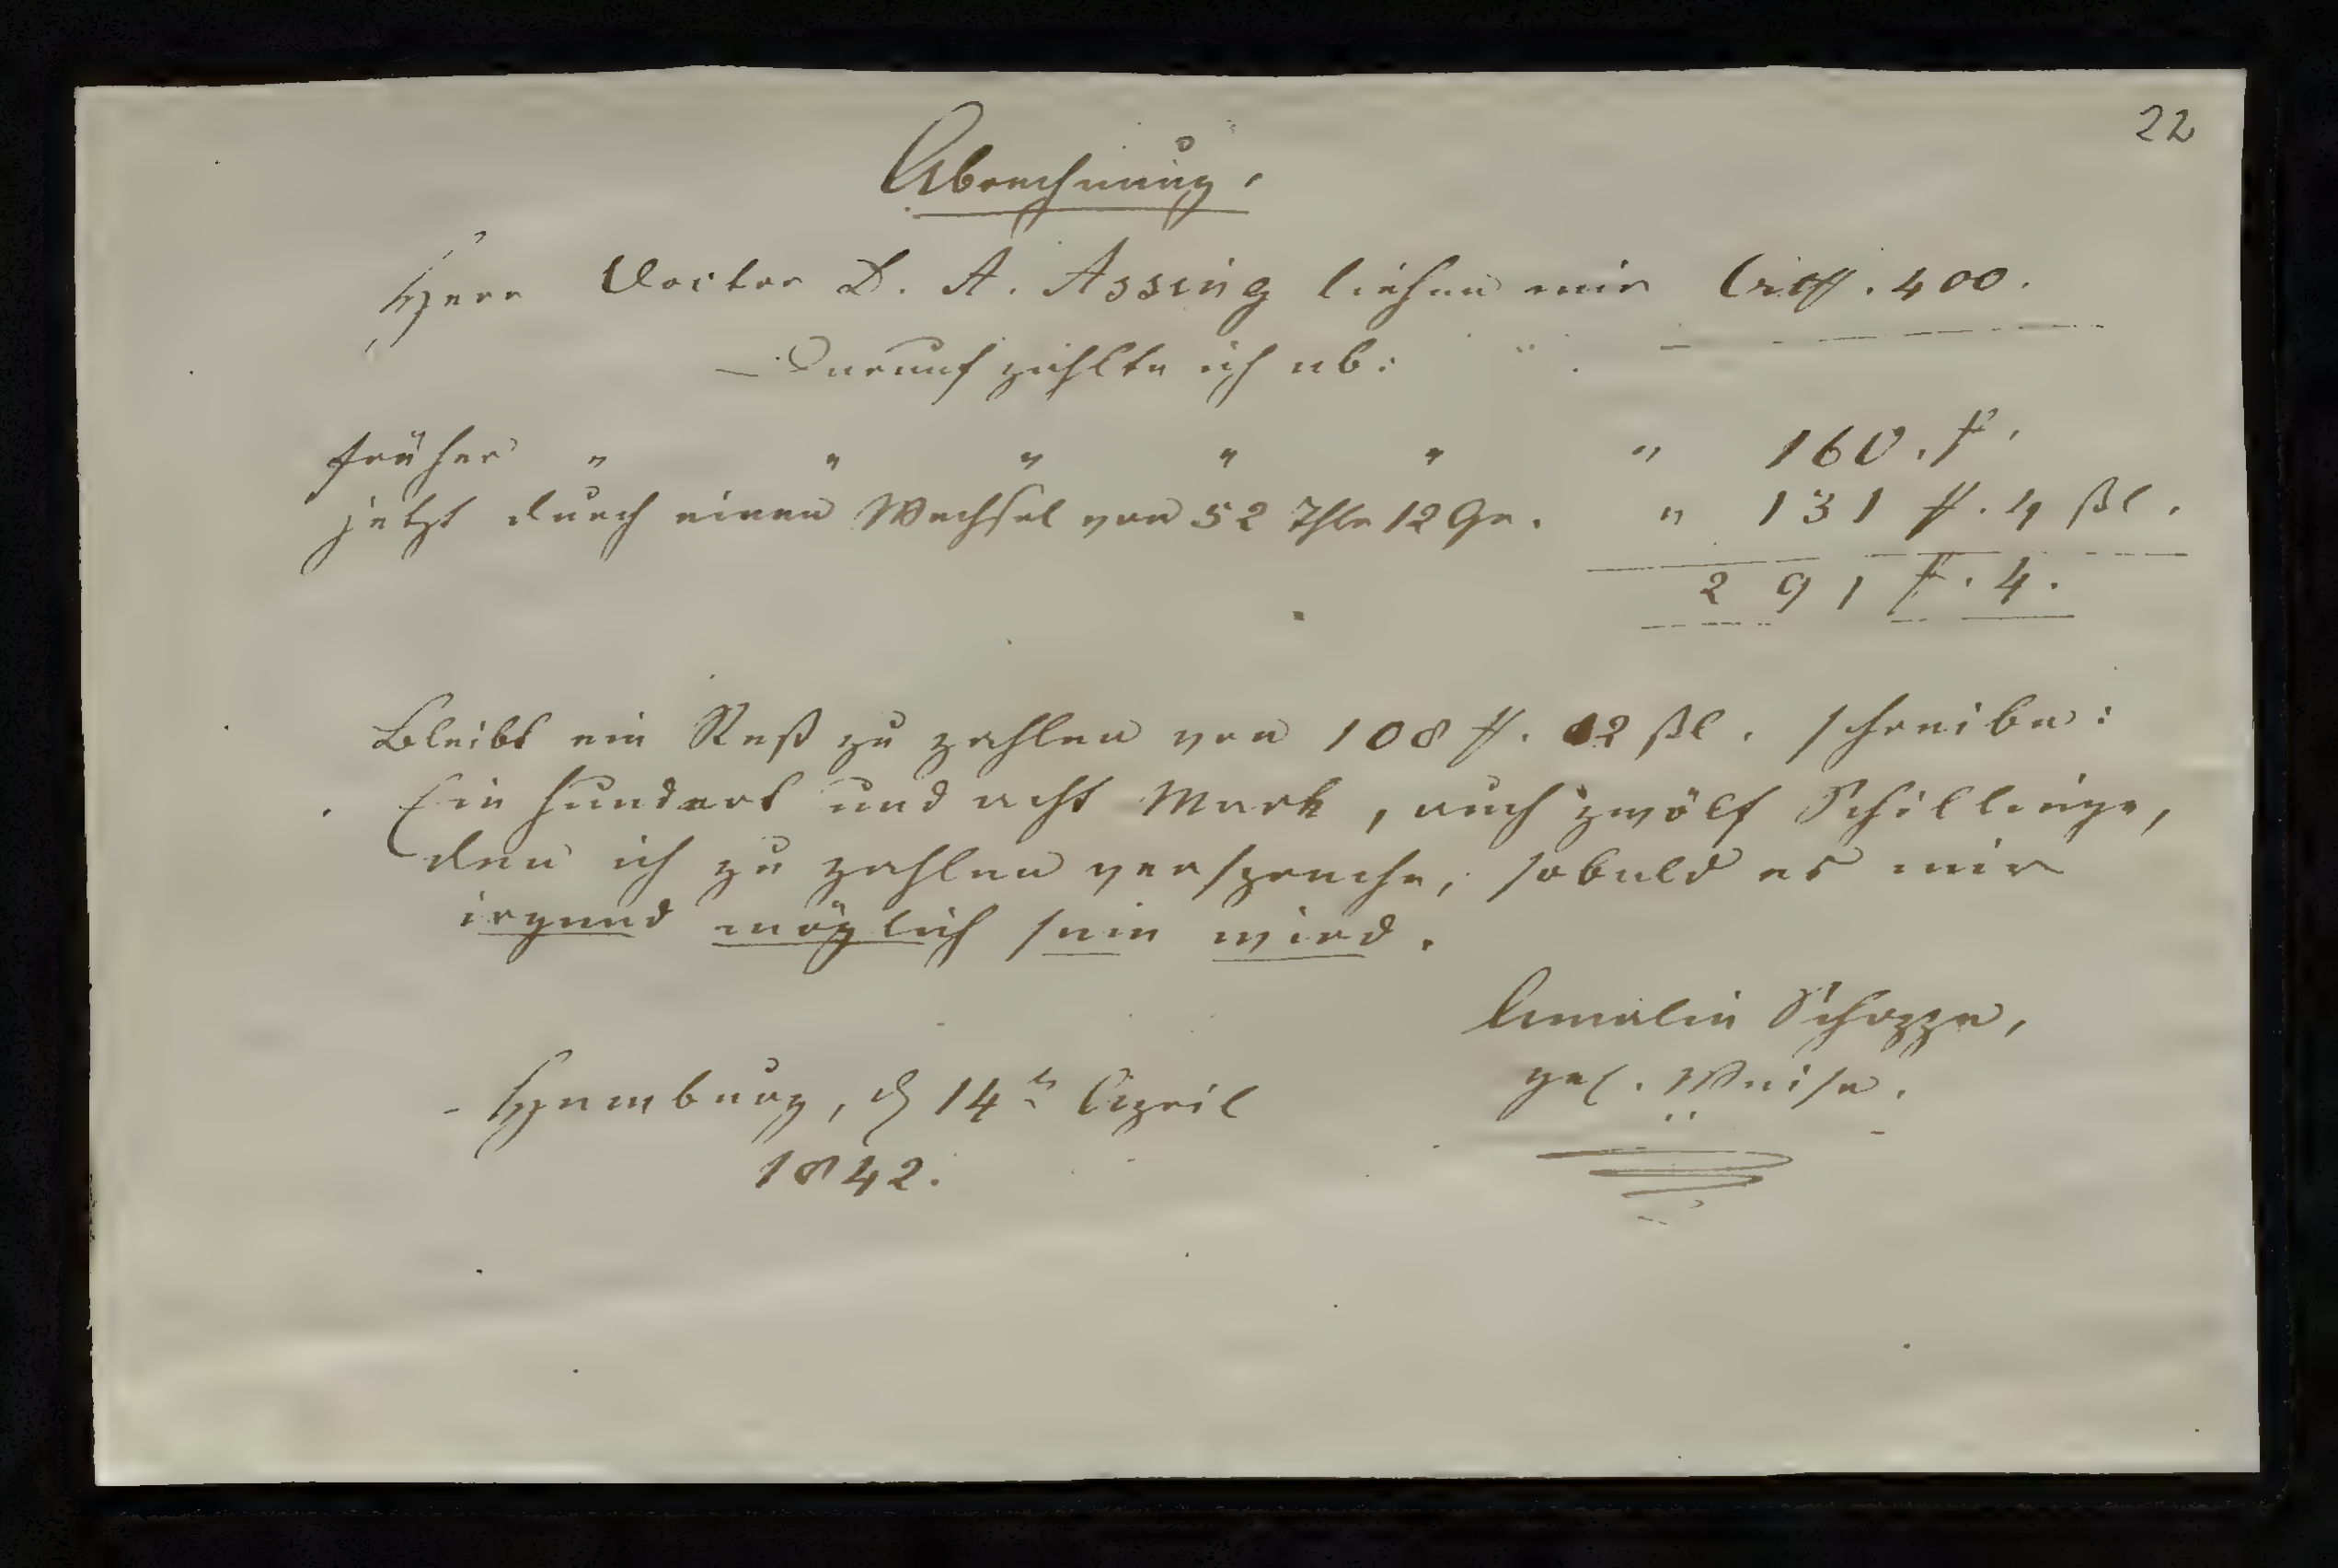 22
Abrechnung.
Herr Doctor D. A. Assing liehen mir Crt ₰. 400.
Darauf zahlte ich ab:
früher " " " " " " 160. ₰.
jetzt durch einen Wechsel von 52 Thlr 12 Gr. " 131 ₰. 4 ßl.
291 ₰. 4.
Bleibt ein Reß zu zahlen von 108 ₰. 12 ßl. schreibe:
Ein hundert und acht Mark, auch zwölf Schillinge,
den ich zu zahlen verspreche, sobald es mir
irgend möglich sein wird.
Amalia Schoppe,
geb. Weise.
Hamburg, d 14ten April
1842.